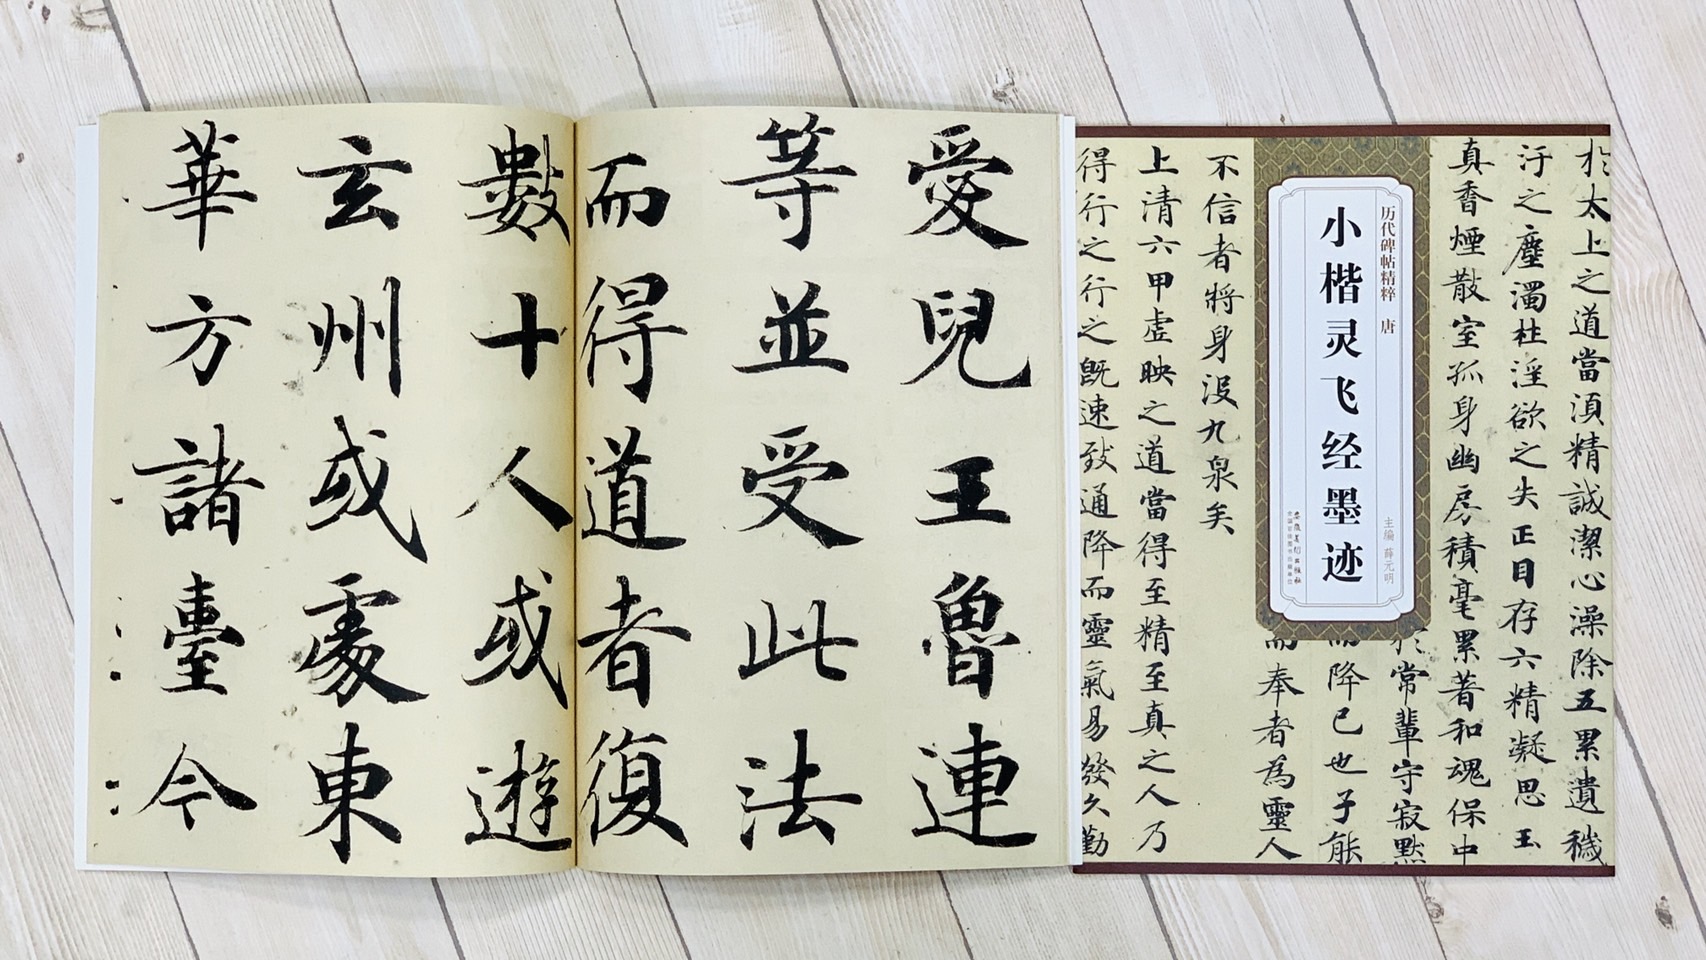 愛兒王魯連
等並受此法
而得道者復
數十人或遊
玄州或處東
華方諸臺今
於太上之道當湏精誠潔心澡除五累遺穢
汙之塵濁杜淫欲之失正目存六精凝思玉
真香煙散室孤身幽房積毫累著和魂保中
历代碑帖精粹 唐
主编 薛元明
小楷灵飞经墨迹
安徽美术出版社
全国百佳图书出版单位
於常輩守寂默
而降已也子能
而奉者為靈人
不信者將身沒九泉矣
上清六甲虛映之道當得至精至真之人乃
得行之行之既速致通降而靈氣易發久勤